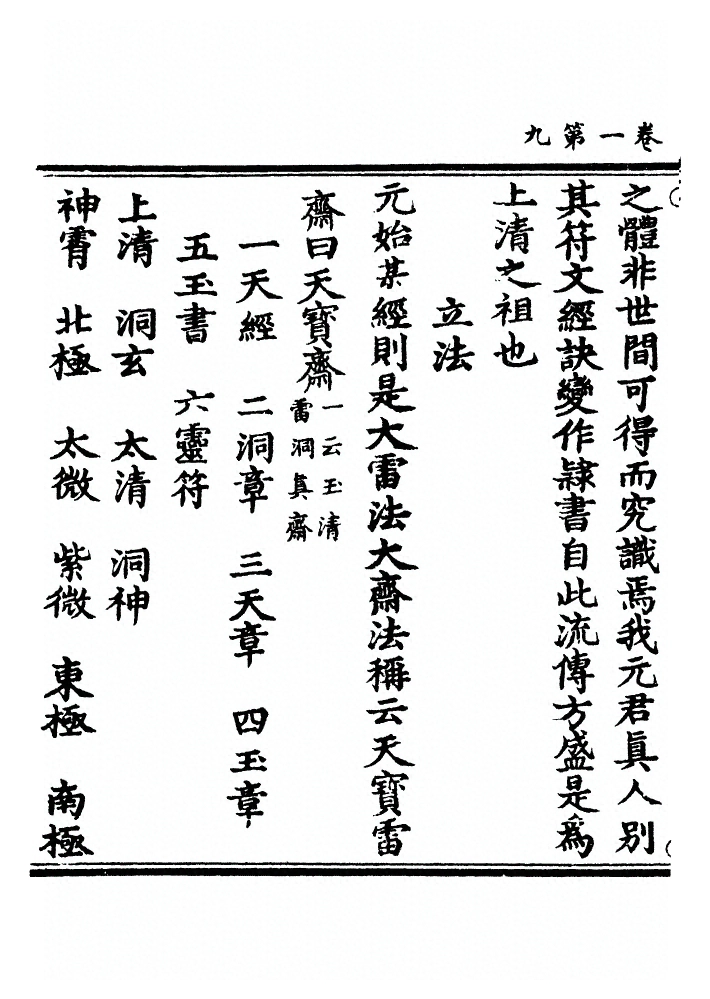 卷一第九
之體非世間可得而究識焉我元君眞人别
其符文經訣變作隷書自此流傳方盛是爲
上清之祖也
立法
元始某經則是大雷法大齋法稱云天寶雷
齋曰天寶齋一云玉清
雷洞真齋
一天經　二洞章　三天章　四玉章
五玉書　六靈符
上清　洞玄　太清　洞神
神霄　北極　太微　紫微　東極　南極